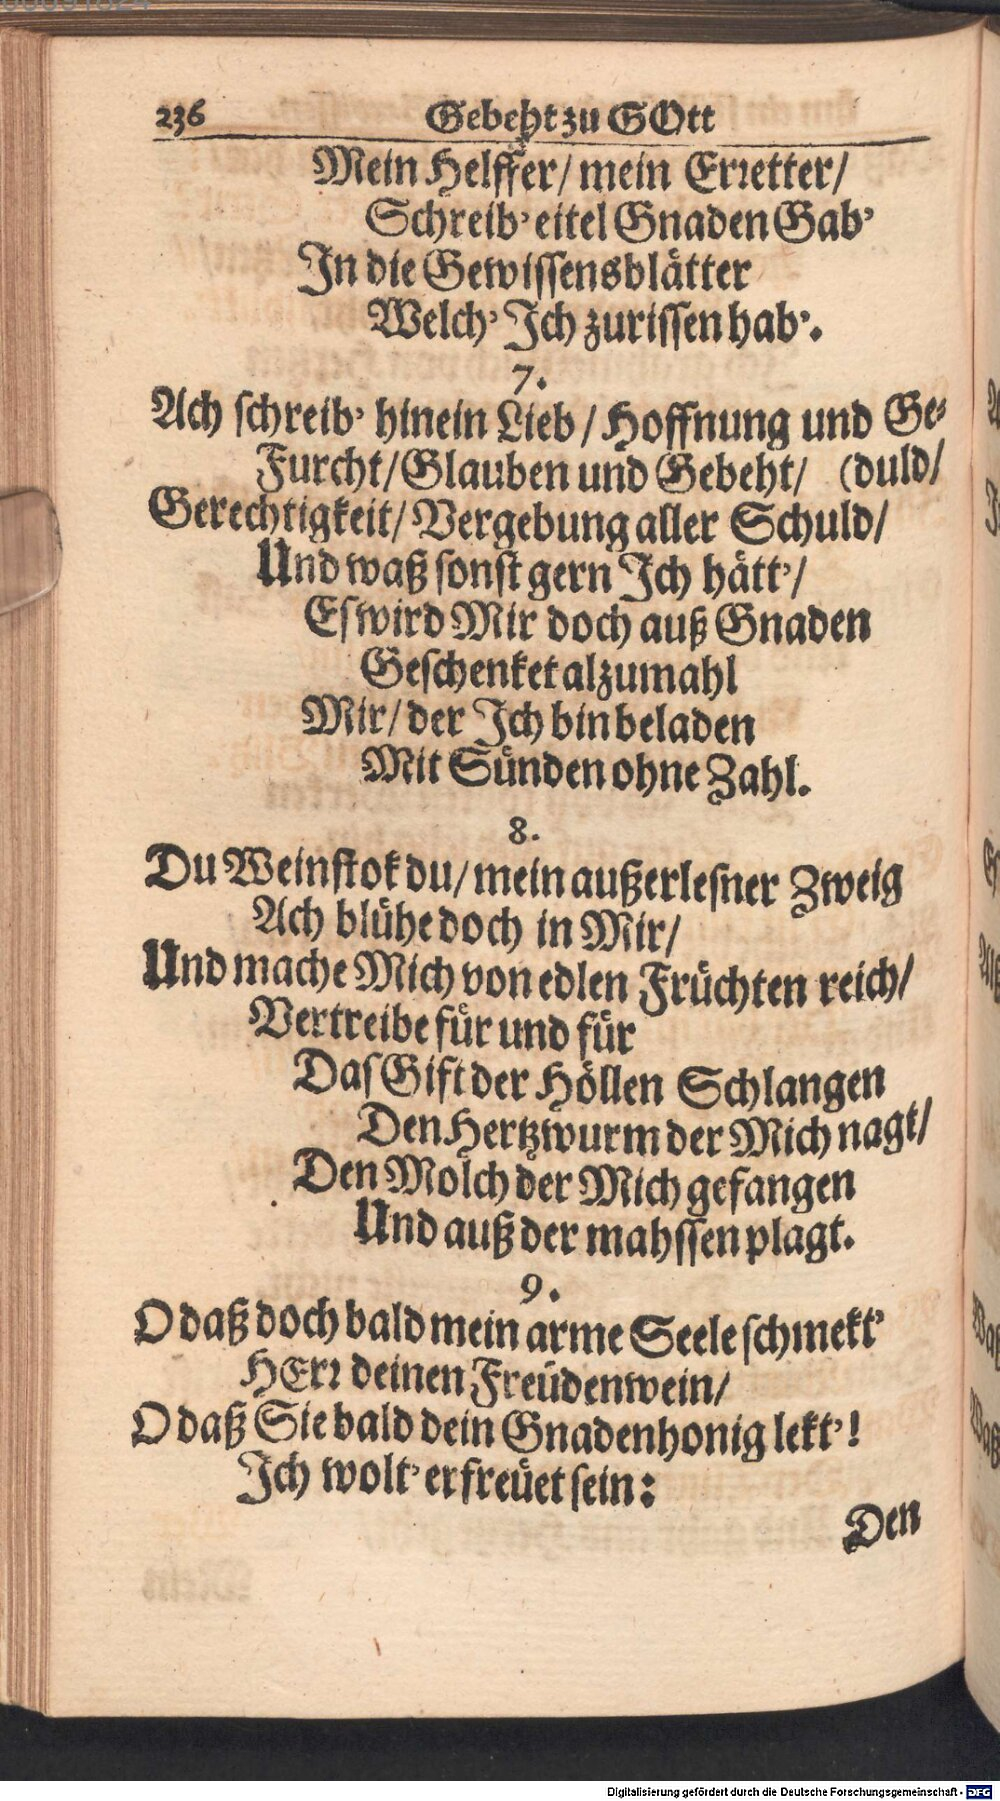 236 Gebeht zu GOtt
Mein Helffer/ mein Erretter/
Schreib' eitel Gnaden Gab'
In die Gewissensblåtter
Welch' Ich zurissen hab'.
7.
Ach schreib' hinein Lieb/ Hoffnung und Ge-
Furcht/ Glauben und Gebeht/ (duld/
Gerechtigkeit/ Vergebung aller Schuld/
Und waß sonst gern Ich hått'/
Es wird Mir doch auß Gnaden
Geschenket alzumahl
Mir/ der Ich bin beladen
Mit Sůnden ohne Zahl.
8.
Du Weinstok du/ mein außerlesner Zweig
Ach blůhe doch in Mir/
Und mache Mich von edlen Frůchten reich/
Vertreibe fůr und fůr
Das Gift der Hőllen Schlangen
Den Hertzwurm der Mich nagt/
Den Molch der Mich gefangen
Und auß der mahssen plagt.
9.
O daß doch bald mein arme Seele schmekt'
HErr deinen Freůdenwein/
O daß Sie bald dein Gnadenhonig lekt'!
Ich wolt' erfreůet sein:
Den
Digitalisierung gefördert durch die Deutsche Forschungsgemeinschaft - DFG